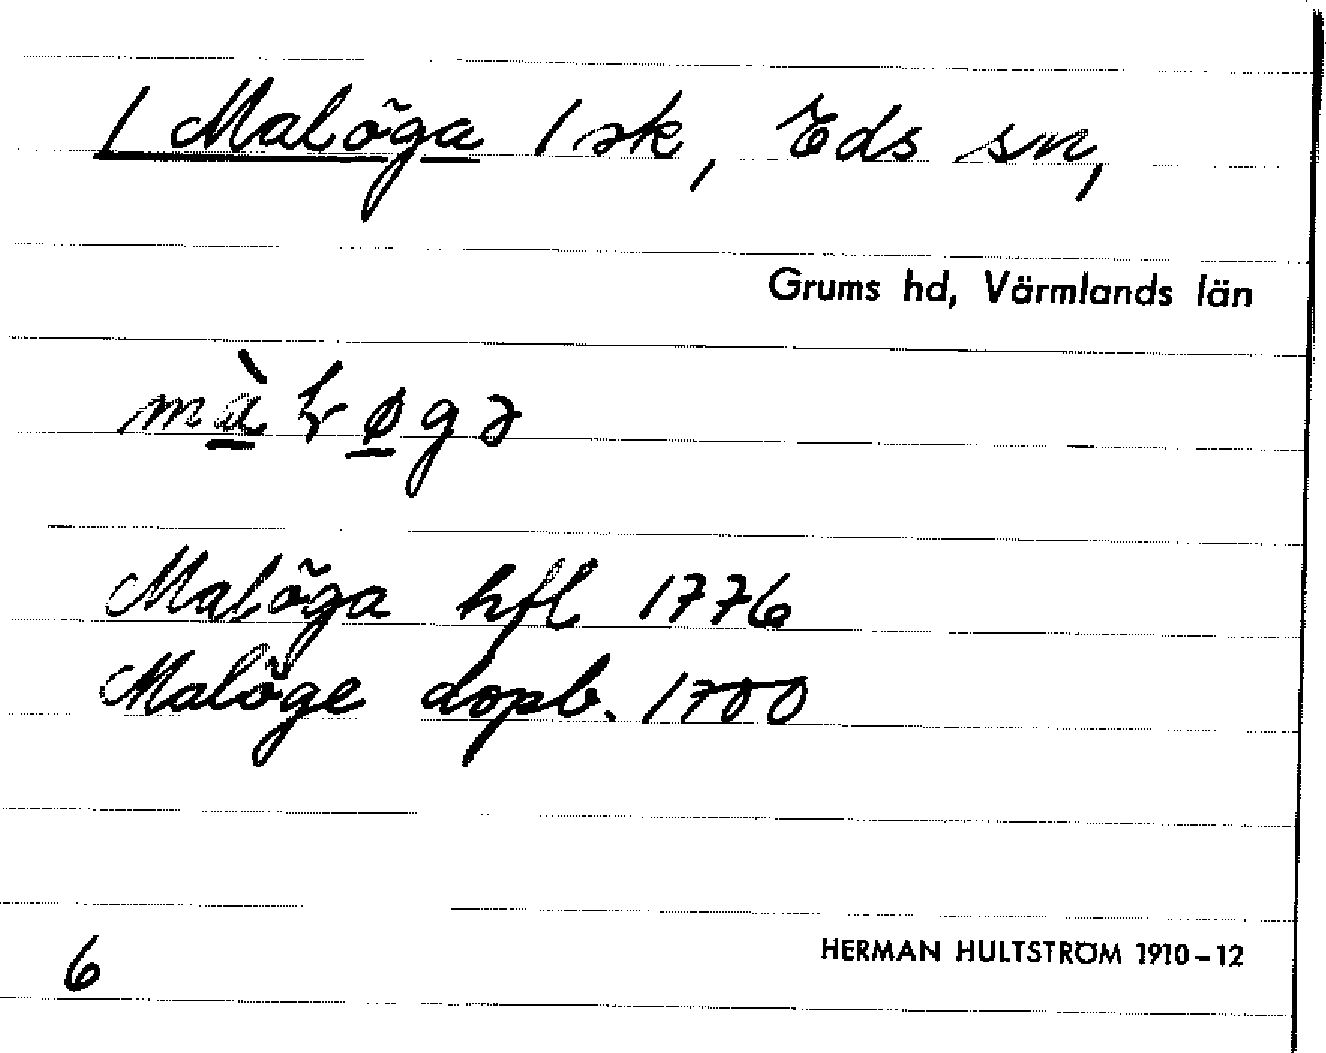 / Malöga / sk, Eds sn,
Grums hd, Värmlands län
Malöga hfl 1776
Malöge dopb. 1700
6
HERMAN HULTSTRÖM 1910-12